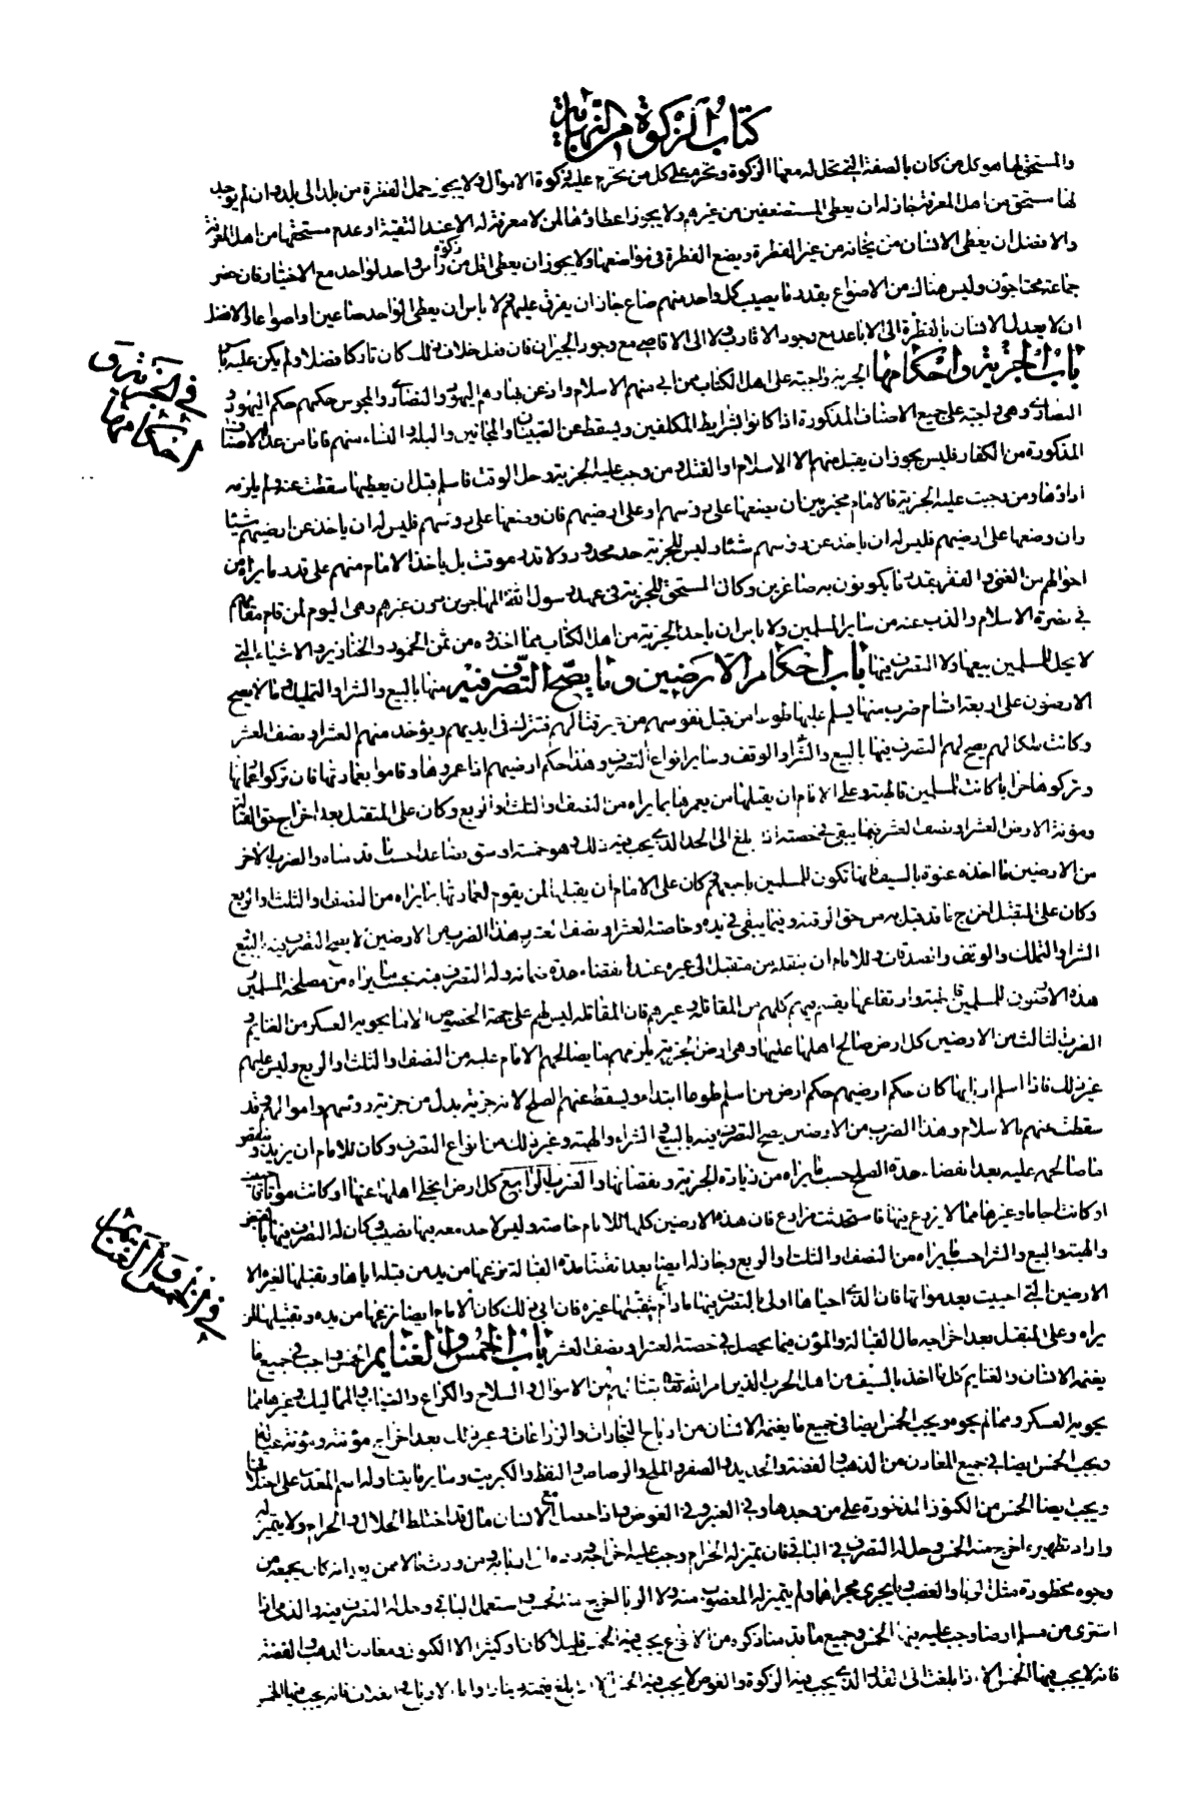 كتاب الزكوة من النهاية
والمستحق لها هو كل من كان بالصفة التي تحل له معها الزكوة وتحرم على كل من تحرم عليه زكوة الاموال ولا يجوز حمل الفطرة من بلد الى بلد وان لم يوجد
لها مستحق من اهل المعرفة جاز له ان يعطى المستضعفين من غيرهم ولا يجوز اعطاؤها لمن لا معرفة له الا عند التقية او عدم مستحقها من اهل المعرفة
والافضل ان يعطى الانسان من يخافه من غير الفطرة ويضع الفطرة في مواضعها ولا يجوز ان يعطى اقل من زكوة راس واحد لواحد مع الاختيار فان حضر
جماعة محتاجون وليس هناك من الاصواع بقدر ما يصيب كل واحد منهم صاع جاز ان يفرق عليهم ولا باس ان يعطى الواحد صاعين او اصواعا والافضل
ان لا يعدل الانسان بالفطرة الى الاباعد مع وجود الاقارب ولا الى الاقاصي مع وجود الجيران فان فعل خلاف ذلك كان تاركا فضلا ولم يكن عليه باس
باب الجزية واحكامها الجزية واجبة على اهل الكتاب ممن ابى منهم الاسلام واذعن بها وهم اليهود والنصارى والمجوس حكمهم حكم اليهود و
في الجزية و
احكامها
النصارى وهي واجبة على جميع الاصناف المذكورة اذا كانوا بشرايط المكلفين ويسقط عن الصبيان والمجانين والبله والنساء منهم فاما من عدا الاصناف
المذكورة من الكفار فليس يجوز ان يقبل منهم الا الاسلام او القتل ومن وجب عليه الجزية وحل الوقت فاسلم قبل ان يعطيها سقطت عنه ولم يلزمه
اداؤها ومن وجبت عليه الجزية فالامام مخير بين ان يضعها على رؤسهم او على ارضيهم فان وضعها على رؤسهم فليس له ان ياخذ عن ارضيهم شيئا
وان وضعها على ارضيهم فليس له ان ياخذ عن رؤسهم شيئا وليس للجزية حد محدود ولا قدر موقت بل ياخذ الامام منهم على قدر ما يراه من
احوالهم من الغنى والفقر بقدر ما يكونون به صاغرين وكان المستحق للجزية في عهد رسول الله المهاجرين دون غيرهم وهي اليوم لمن قام مقامهم
في نصرة الاسلام والذب عنه من ساير المسلمين ولا باس ان ياخذ الجزية من اهل الكتاب مما اخذوه من ثمن الخمور والخنازير والاشياء التي
لا يحل للمسلمين بيعها ولا التصرف فيها باب احكام الارضين وما يصح التصرف فيه منها بالبيع والشراء والتمليك وما لا يصح
الارضون على اربعة اقسام ضرب منها يسلم عليها طوعا من قبل نفوسهم من غير قتال لهم فتترك في ايديهم ويؤخذ منهم العشر او نصف العشر
وكانت ملكا لهم يصح لهم التصرف فيها بالبيع والشراء والوقف وساير انواع التصرف وهذا حكم ارضيهم اذا عمروها وقاموا بعمارتها فان تركوا عمارتها
وتركوها خرابا كانت للمسلمين قاطبة وعلى الامام ان يقبلها من يعمرها بما يراه من النصف والثلث والربع وكان على المتقبل بعد اخراج حق القبالة
ومؤنة الارض العشر او نصف العشر فيما يبقى في خصته اذا بلغ الى الحد الذي يجب فيه ذلك وهو خمسة اوسق فصاعدا حسب ما قدمناه والضرب الاخر
من الارضين ما اخذ عنوة بالسيف فانها تكون للمسلمين باجمعهم وكان على الامام ان يقبلها لمن يقوم بعمارتها بما يراه من النصف والثلث والربع
وكان على المتقبل اخراج ما قد قبل به من حق الرقبة وفيما يبقى في يده وخاصته العشر او نصف العشر وهذا الضرب من الارضين لا يصح التصرف فيه بالبيع
الشراء والتملك والوقف والصدقات وللامام ان ينقله من متقبل الى غيره عند انقضاء مدة ضمانه وله التصرف فيه بحسب ما يراه من مصلحة المسلمين
هذه الارضون للمسلمين قاطبة وارتفاعها يقسم فيهم كلهم من المقاتلة وغيرهم فان المقاتلة ليس لهم على جهة الخصوص الا ما يحويه العسكر من الغنايم و
الضرب الثالث من الارضين كل ارض صالح اهلها عليها وهي ارض الجزية يلزمهم ما يصالحهم الامام عليه من النصف والثلث والربع وليس عليهم
غير ذلك فاذا اسلم اربابها كان حكم ارضيهم حكم ارض من اسلم طوعا ابتداء ويسقط عنهم الصلح لانه جزية بدل من جزية رؤسهم واموالهم وقد
سقطت عنهم بالاسلام وهذا الضرب من الارضين يصح التصرف فيه بالبيع والشراء والهبة وغير ذلك من انواع التصرف وكان للامام ان يزيد وينقص
ما صالحهم عليه بعد انقضاء مدة الصلح حسب ما يراه من زيادة الجزية ونقصانها والضرب الرابع كل ارض انجلى اهلها عنها او كانت مواتا فاحييت
او كانت اجاما وغيرها مما لا يزرع فيها فاستحدثت مزارع فان هذه الارضين كلها للامام خاصة وليس لاحد معه فيها نصيب وكان له التصرف فيها بالقبض
والهبة والبيع والشراء حسب ما يراه من النصف والثلث والربع وجاز له ايضا بعد انقضاء مدة القبالة نزعها من يد من قبله اياها وتقبيلها لغيره الا
الارضين التي احييت بعد مواتها فان الذي احياها اولى بالتصرف فيها ما دام يتقبلها غيره فان ابى ذلك كان للامام ايضا نزعها من يده وتقبيلها لمن
في ارزاق و
الخمس والغنايم
يراه وعلى المتقبل بعد اخراجه مال القبالة والمؤن فيما يحصل في خصته العشر او نصف العشر باب الخمس والغنايم الخمس واجب في جميع ما
يغنمه الانسان والغنايم كل ما اخذ بالسيف من اهل الحرب الذين امر الله تعالى بقتالهم من الاموال والسلاح والكراع والثياب والمماليك وغيرها مما
يحويه العسكر ومما لم يحوه ويجب الخمس ايضا في جميع ما يغنمه الانسان من ارباح التجارات والزراعات وغير ذلك بعد اخراج مؤنته ومؤنة عياله
ويجب الخمس ايضا في جميع المعادن من الذهب والفضة والحديد والصفر والملح والرصاص والنفط والكبريت وساير ما يتناوله اسم المعدن على اختلافها
ويجب ايضا الخمس من الكنوز المذخورة على من وجدها وفي العنبر وفي الغوص واذا حصل مع الانسان مال قد اختلط الحلال والحرام ولا يتميز له
واراد تطهيره اخرج منه الخمس وحل له التصرف في الباقي فان تميز له الحرام وجب عليه اخراجه ورده الى اربابه ومن ورث مالا ممن يعلم انه كان يجمعه من
وجوه محظورة مثل الربا والغصب وما يجري مجراهما ولم يتميز له المغصوب منه ولا الربا اخرج منه الخمس واستعمل الباقي وحل له التصرف فيه والذمي اذا
اشترى من مسلم ارضا وجب عليه فيها الخمس وجميع ما قدمنا ذكره من الانواع يجب فيه الخمس قليلا كان او كثيرا الا الكنوز ومعادن الذهب والفضة
فانه لا يجب فيها الخمس الا اذا بلغت الى القدر الذي يجب فيه الزكوة والغوص لا يجب فيه الخمس الا اذا بلغ قيمته دينارا واما